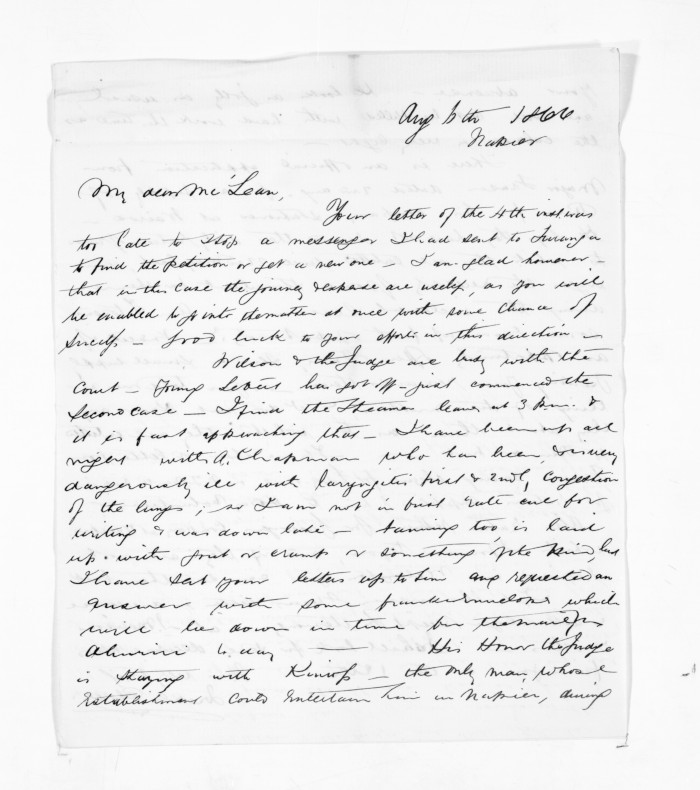 Aug 6th 1866
Napier
My dear McLean,
Your letter of the 4th inst was
too late to stop a messenger I had sent to Turanga
to find the Petition or get a new one - I am glad however -
that in this case the journey & expense are useless, as you will
be enabled to go into the matter at once with some chance of
success - Good luck to your efforts in this direction -
Wilson & the Judge are busy with the
Court - Young has got off - just commenced the
second case - I find the Steamer leaves at 3 p.m. &
it is fast approaching that - I have been up all
night with A. Chapman who has been, & is very
dangerously ill with laryngitis first & 2ndly congestion
of the lungs, so I am not in first rate cue for
writing & was down late - too, is laid
up with gout or cramp or something of the kind, but
I have sent your letters up to him and requested an
answer with some franked envelopes which
will be down in time for the mail
Ahuriri to day - His Honor the Judge
is staying with Kinross - the only man, whose
Establishment could entertain him in Napier, during